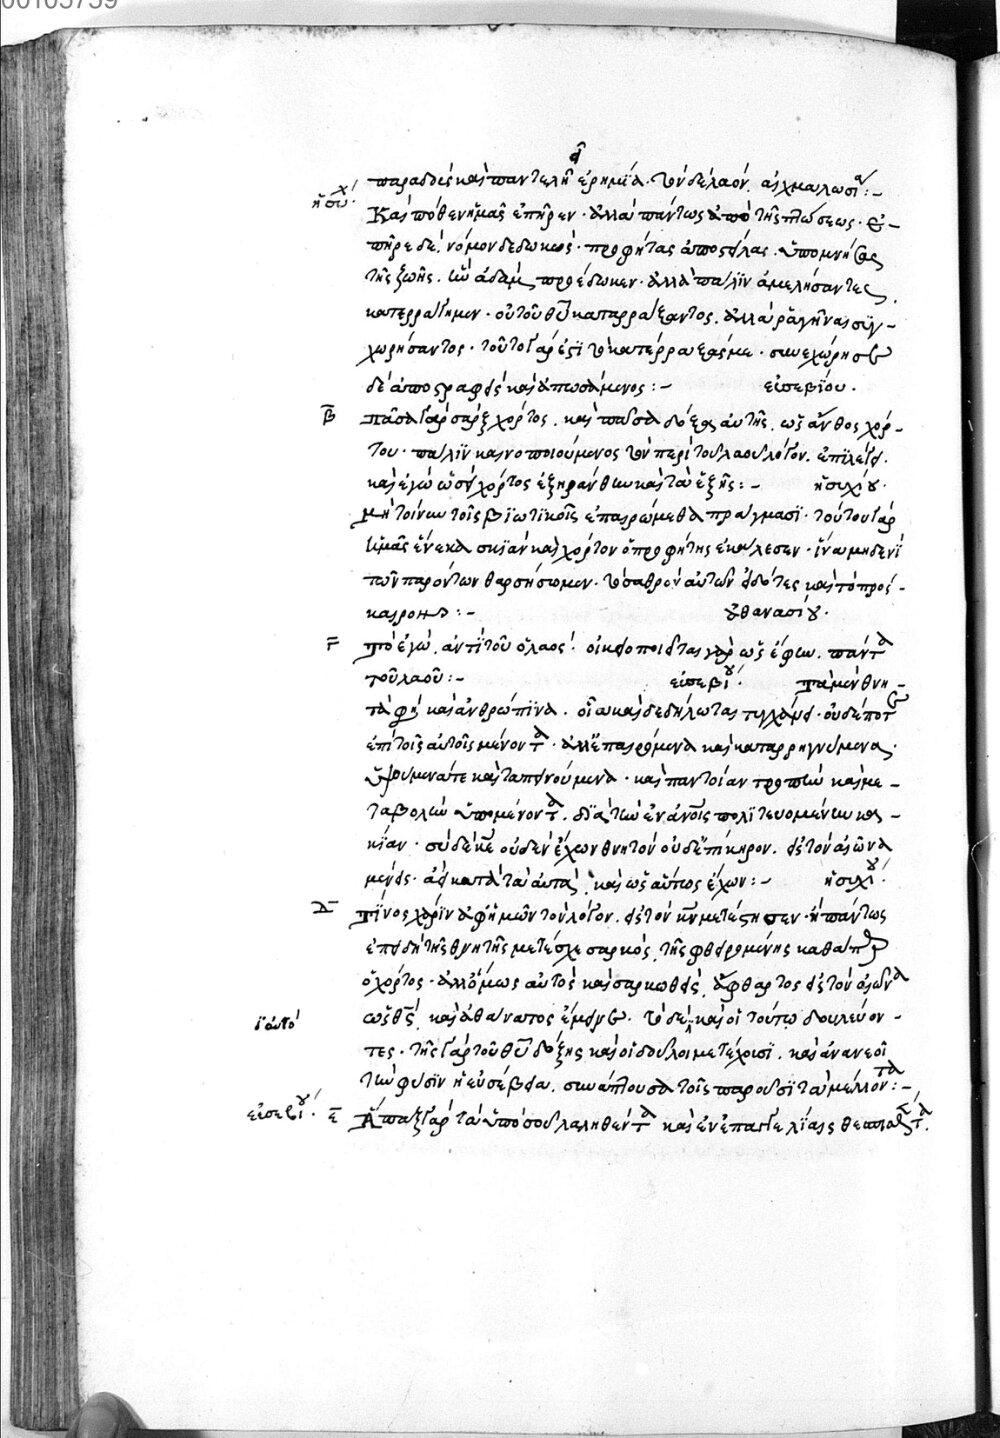 00105759
παραδοὺς καὶ παντελῆ ἐρημία· τὸν δὲ λαὸν, αἰχμαλωσία :-
ἡσυχ
Καὶ πόθεν ἡμᾶς ἐπῆρεν· ἀλλὰ πάντως ἀπὸ τῆς πτώσεως· ἐ-
πῆρε δὲ, νόμον δεδωκὼς· προφήτας ἀποστείλας. ὑπομνήσας
τῆς ζωῆς. ἣν ἀδὰμ προέδωκεν· ἀλλὰ πάλϊν ἀμελήσαντες
κατερράγημεν· οὐ τοῦ θυ καταρράξαντος. ἀλλὰ ῥαγῆναι συγ-
χωρήσαντος· τοῦτο γάρ ἐστϊ τὸ κατέρραξάς με· συνεχώρησας
δὲ ἀποστραφεὶς καὶ ἀπωσάμενος :- εὐσεβίου.
β πᾶσα γὰρ σὰρξ χόρτος. καὶ πᾶσα δόξα αὐτῆς, ὡς ἄνθος χόρ-
του· πάλϊν καινοποιούμενος τὸν περὶ τοῦ λαοῦ λόγον. ἐπϊλέγει.
καὶ ἐγὼ ὡσεὶ χόρτος ἐξηράνθην καὶ τὰ ἑξῆς :- ἡσυχίου.
μὴ τοίνυν τοῖς βϊωτϊκοῖς ἐπαιρώμεθα πράγμασϊ· τούτου γὰρ
ἡμᾶς ἕνεκα σκϊὰν καὶ χόρτον ὁ προφήτης ἐκάλεσεν· ἵνα μηδενὶ
τῶν παρόντων θαρσήσωμεν· τὸ σαθρὸν αὐτῶν εἰδότες καὶ τὸ πρόσ-
καιρον :- ἀθανασίου.
γ τὸ ἐγὼ, ἀντὶ τοῦ ὁ λαός· οἰκειοποιεῖται γὰρ ὡς ἔφην. πάντα
τοῦ λαοῦ :- εὐσεβίου. τὰ μὲν θνη-
τὰ φησὶ καὶ ἀνθρώπϊνα. οἷα καὶ δεδήλωται τυγχάνει· οὐδέποτε
ἐπὶ τοῖς αὐτοῖς μένοντα· ἀλλ' ἐπαιρόμενα καὶ καταρρηγνύμενα.
ὑψούμενά τε καὶ ταπεινούμενα· καὶ παντοίαν τροπὴν καὶ με-
ταβολὴν ὑπομένοντα. δϊὰ τὴν ἐν ἀνοις πολϊτευομένην κα-
κίαν· σὺ δὲ κε οὐδὲν ἔχων θνητὸν οὐδ' ἐπίκηρον. εἰς τὸν αἰῶνα
μένεις· ἀεὶ κατὰ τὰ αὐτὰ, καὶ ὡσαύτως ἔχων :- ἡσυχίου.
δ τϊνος χάρϊν ἀφ' ἡμῶν τὸν λόγον. εἰς τὸν κν μετέστησεν· ἢ πάντως
ἐπειδὴ τῆς θνητῆς μετέσχε σαρκὸς, τῆς φθειρομένης καθάπερ
ὁ χόρτος· ἀλλ' ὅμως αὐτὸς καὶ σαρκωθεὶς, ἄφθαρτος εἰς τὸν αἰῶνα
ὡς θς, καὶ ἀθάνατος ἔμεινεν. τὸ δὲ, καὶ οἱ τούτῳ δουλεύον-
τες· τῆς γὰρ τοῦ θυ δόξης καὶ οἱ δοῦλοι μετέχουσϊ. καὶ ἀνανεοῖ
τὴν φύσϊν ἡ εὐσέβεια. συνάπτουσα τοῖς παροῦσϊ τὰ μέλλοντα :-
εὐσεβίου. ε Ἅπαξ γὰρ τὰ ὑπὸ σοῦ λαληθέντα καὶ ἐν ἐπαγγελϊαις θεσπισθέντα.